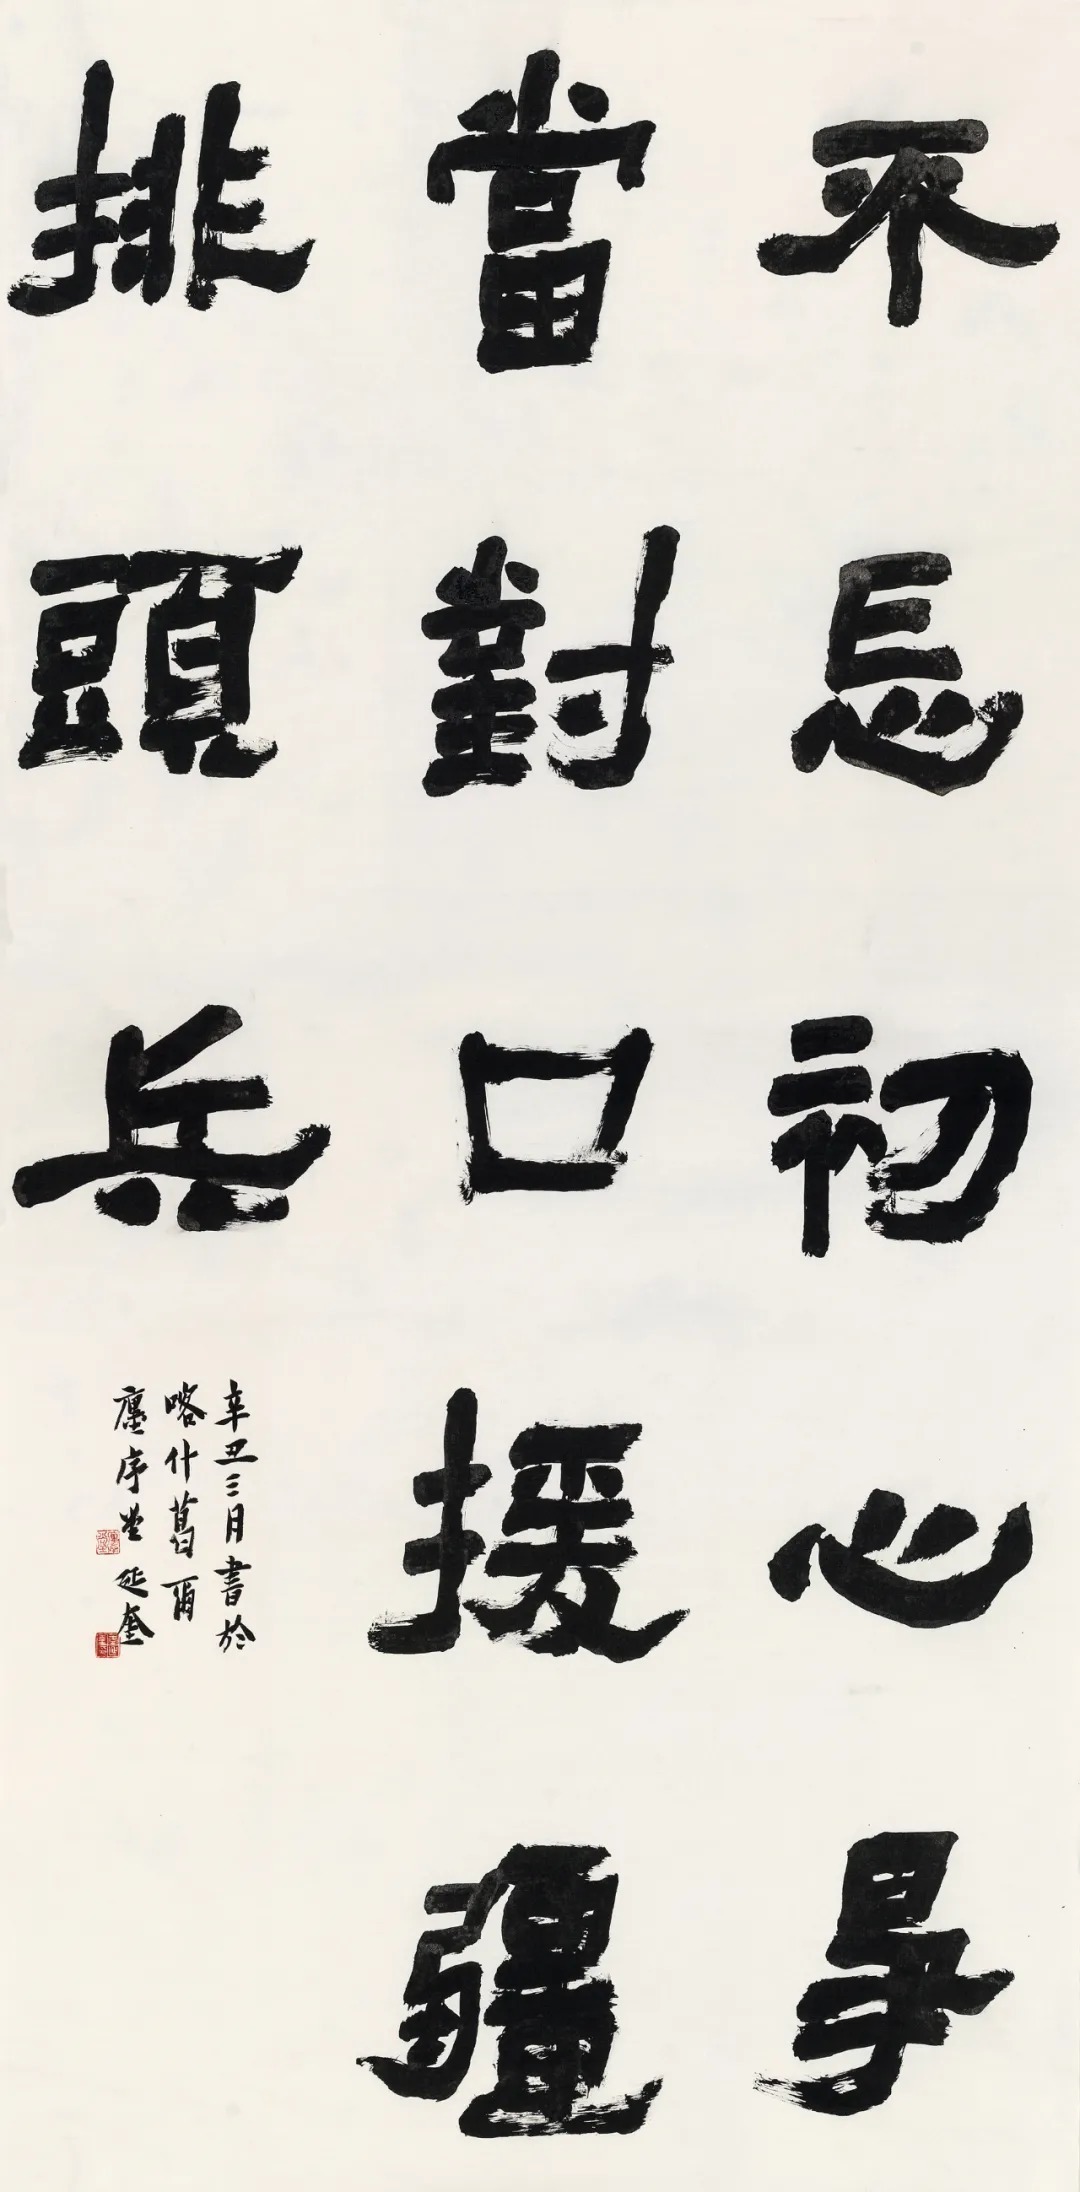 不忘初心爭
當對口援疆
排頭兵
辛丑三月書於
喀什葛爾
序堂 延奎